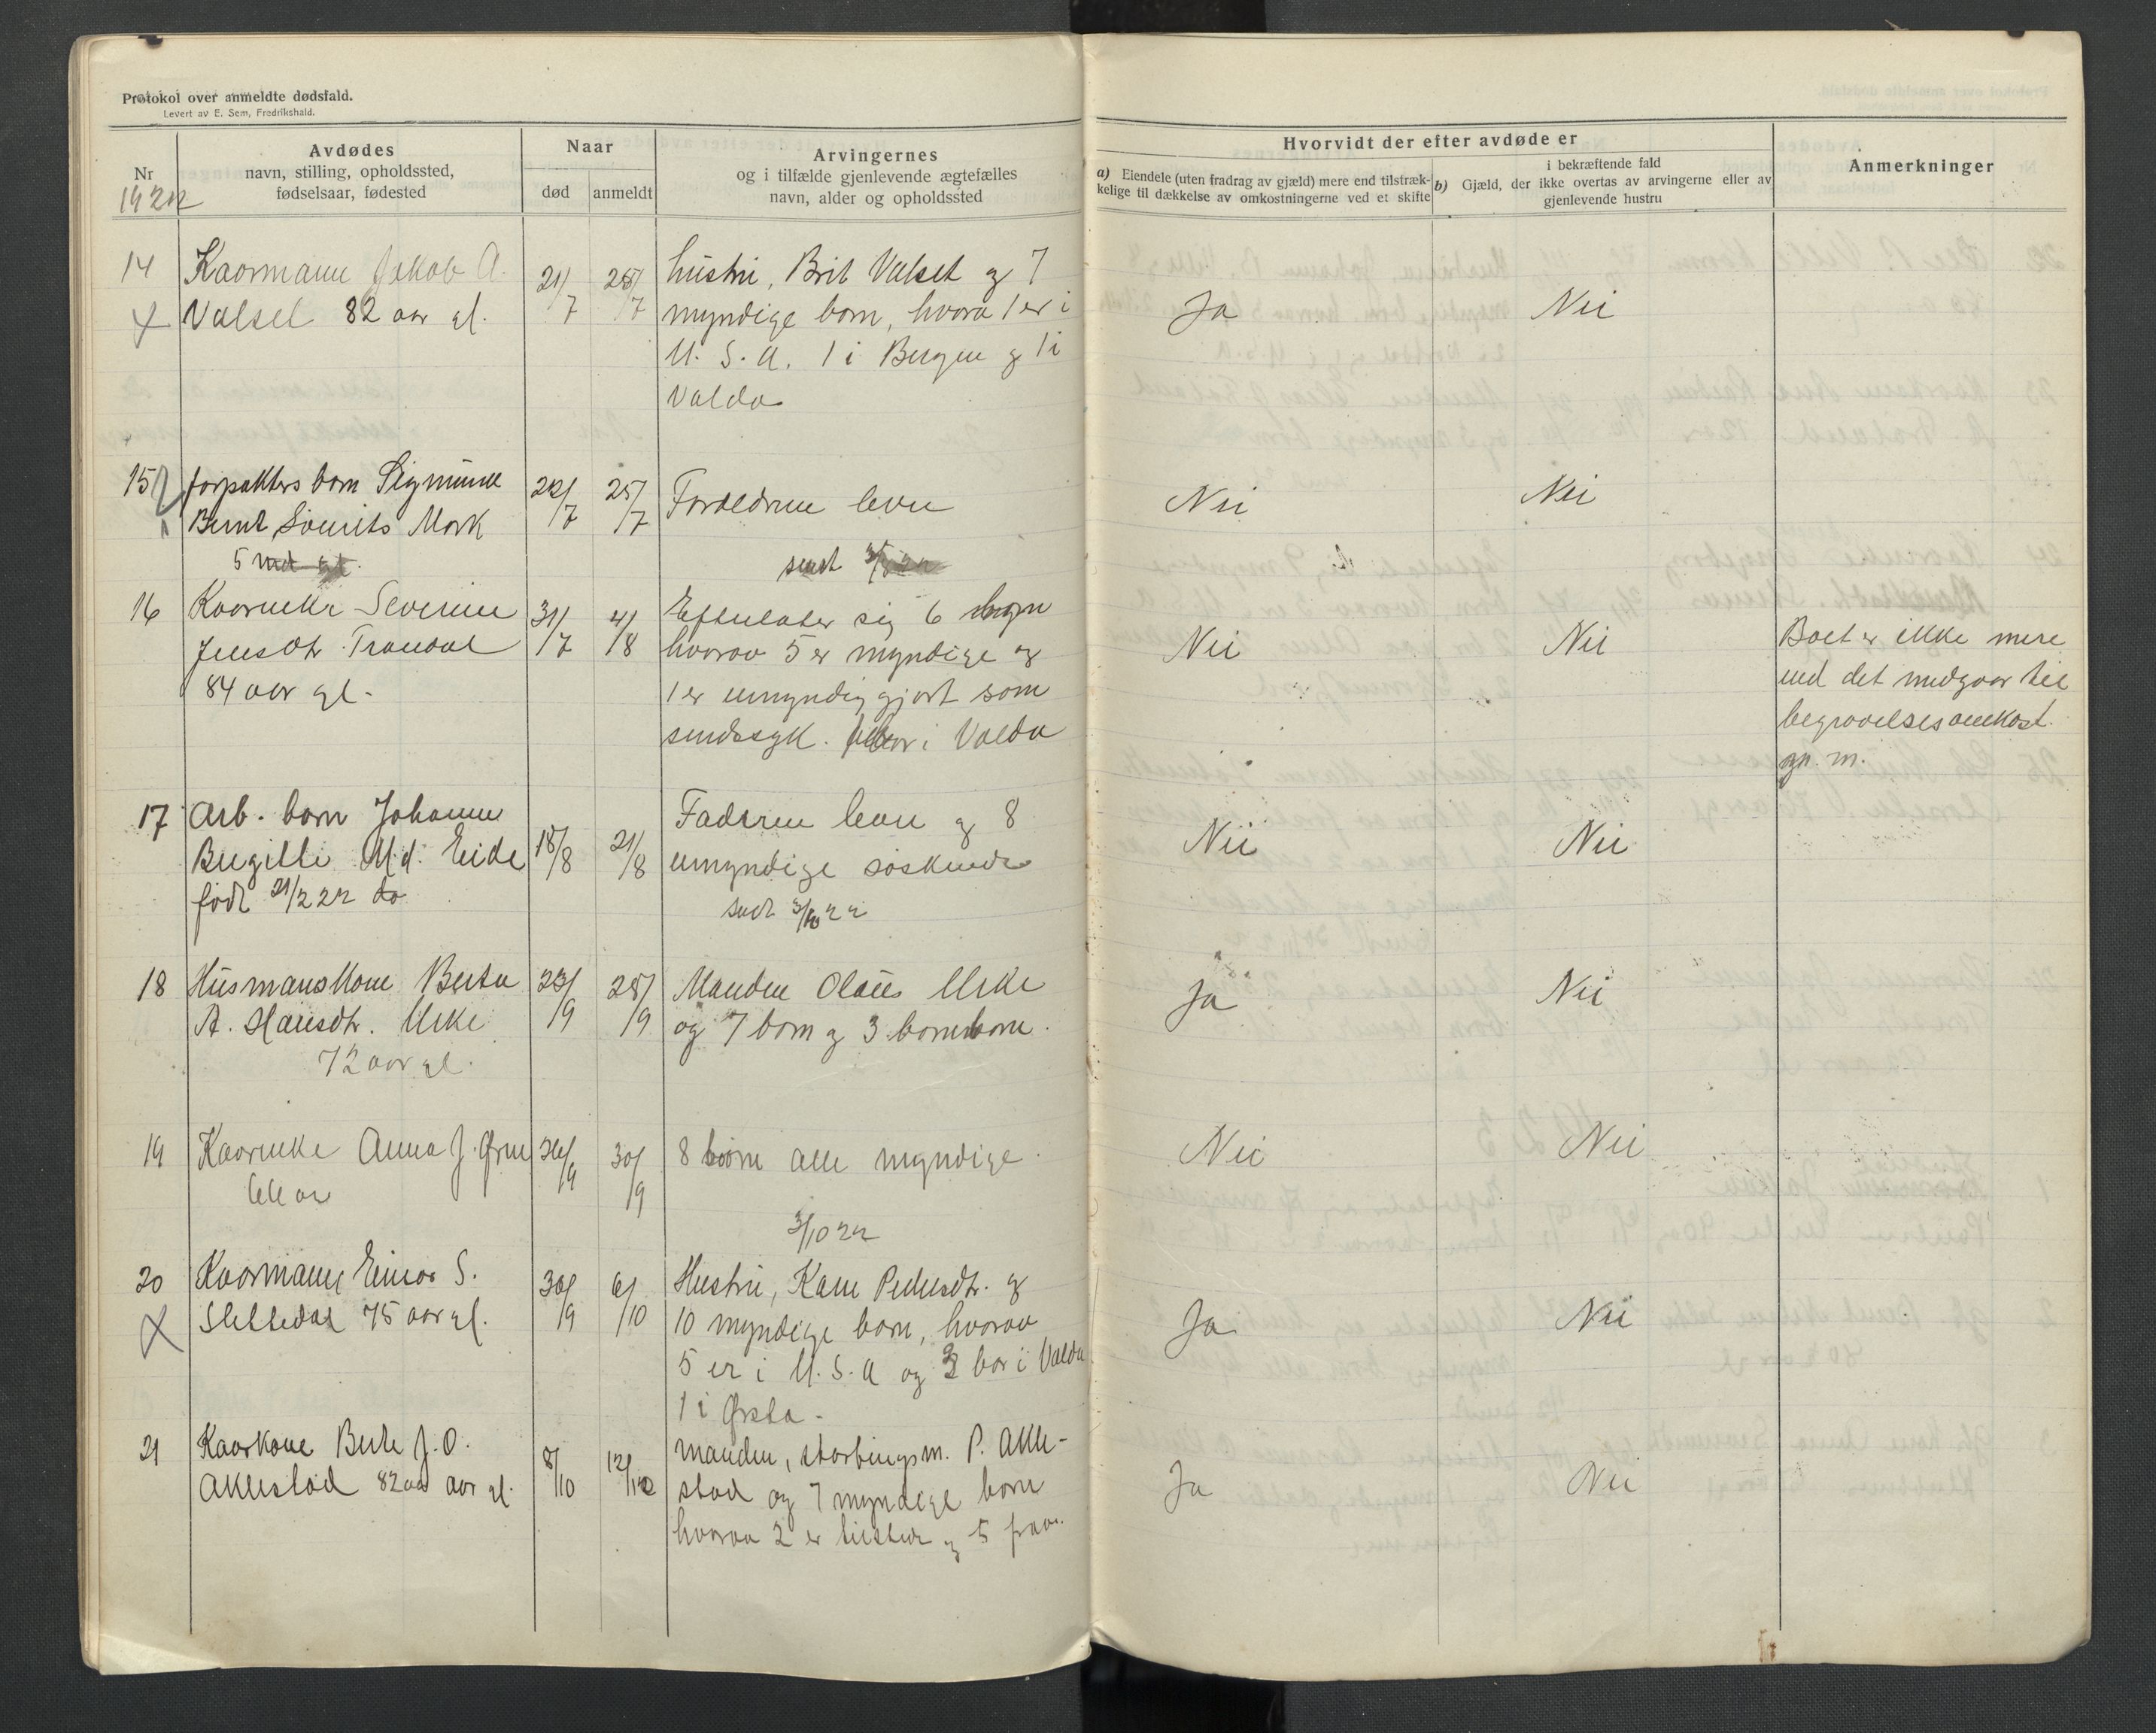 Protokol over anmeldte dødsfald.
Levert av E. Sem, Fredrikshald.
Nr
1922
Avdødes
navn, stilling, opholdssted,
fødselsaar, fødested
Naar
død
anmeldt
Arvingernes
og i tilfælde gjenlevende ægtefælles
navn, alder og opholdssted
Hvorvidt der efter avdøde er
a) Eiendele (uten fradrag av gjæld) mere end tilstræk-
kelige til dækkelse av omkostningerne ved et skifte
i bekræftende fald
b) Gjæld, der ikke overtas av arvingerne eller av
gjenlevende hustru
Anmerkninger
14
Kaarmann Jakob A.
Valset 82 aar gl.
21/7
25/7
hustru, Brit Valset og 7
myndige børn, hvorav 1 er i
U. S. A. 1 i Bergen og 1 i
Volda
Ja
Nei
15
forpakters barn Sigmund
Bernt Mork
5 md gl.
22/7
25/7
Forældrene lever
sendt
Nei
Nei
16
Kaarenke Severine
Jensdtr. Trandal
84 aar gl.
31/7
4/8
Efterlater sig 6 børn
hvorav 5 er myndige og
1 er umyndiggjort som
sindssyk. i Volda
Nei
Nei
Boet er ikke mere
end det medgaar til
begravelsesomkost.
m.
17
Arb. barn Johanne
Bergitte M.d. Eide
født 21/2 22 do
18/8
21/8
Faderen lever og 8
umyndige søskende
sendt 3/10 22
Nei
Nei
18
Husmanskone Berta
A. Hansdtr. Urke
72 aar gl.
23/9
25/9
Manden Olaus Urke
og 7 børn og 3 barnebørn.
Ja
Nei
19
Kaarenke Anna J.
aar
26/9
30/9
8 børn alle myndige.
3/10 22
Nei
Nei
20
Kaarmann Einar S.
Slettedal 75 aar gl.
30/9
6/10
Hustru, Kam Pedersdtr. og
10 myndige børn, hvorav
5 er i U. S. A og 3 bor i Volda
1 i Ørsta.
Ja
Nei
21
Kaarkone Berte J. O.
Aklestad 82 aar gl.
8/10
12/10
manden, storbingsm. P. Akle-
stad og 7 myndige børn
hvorav 2 er tilstede og 5 frav.
Ja
Nei